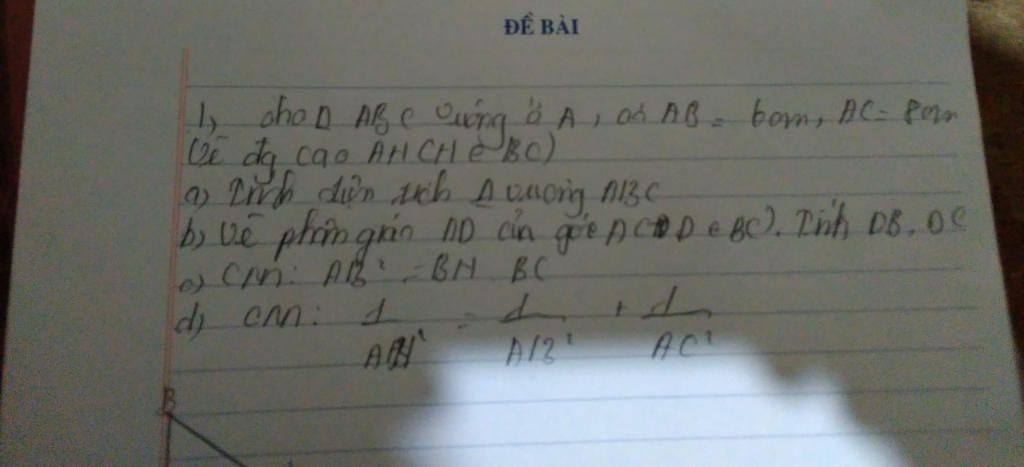 ĐỀ BÀI
1, cho Δ ABC vuông ở A, có AB = 6cm, AC = 8cm
Vẽ đg cao AH (H ∈ BC)
a) Tính diện tích Δ vuông ABC
b) Vẽ phân giác AD của góc A (D ∈ BC). Tính DB, DC
c) CM: AB² = BH. BC
d) CM: 1/AH² = 1/AB² + 1/AC²
B